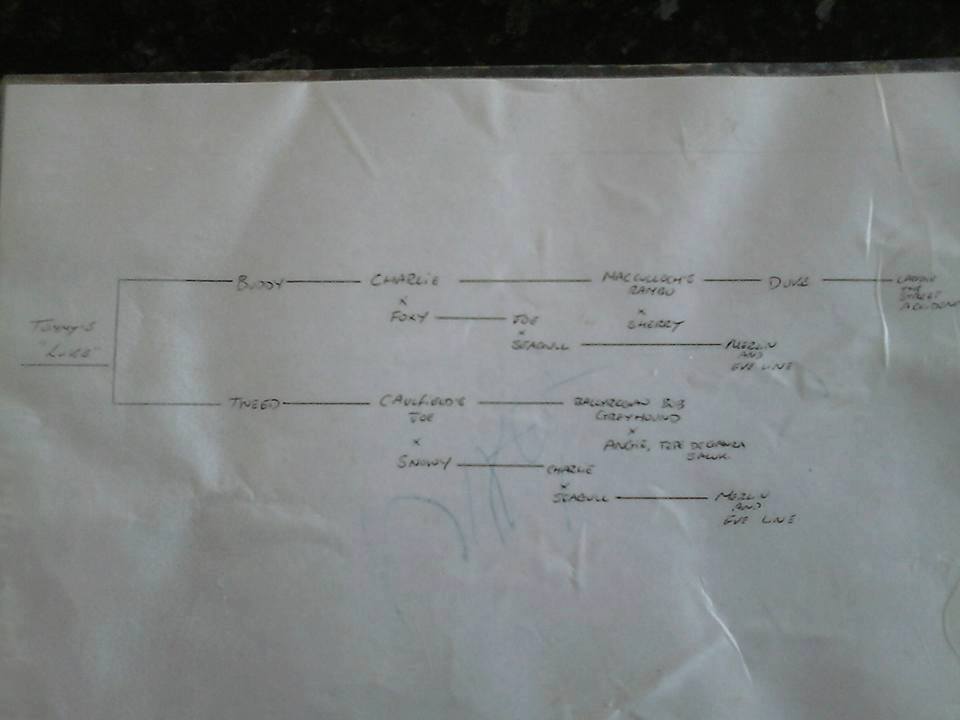 BUDDY CHARLIE MACCULLOCH'S DUKE
RAMBO
x
FOXY JOE x
SHERRY
x
SEAGULL MERLIN
AND
EVE LINE
TOMMY'S
TWEED CAULFIELD'S BALLYREGAN BOB
JOE GREYHOUND
x x
ANGIE,
SNOWY CHARLIE
x
SEAGULL MERLIN
AND
EVE LINE